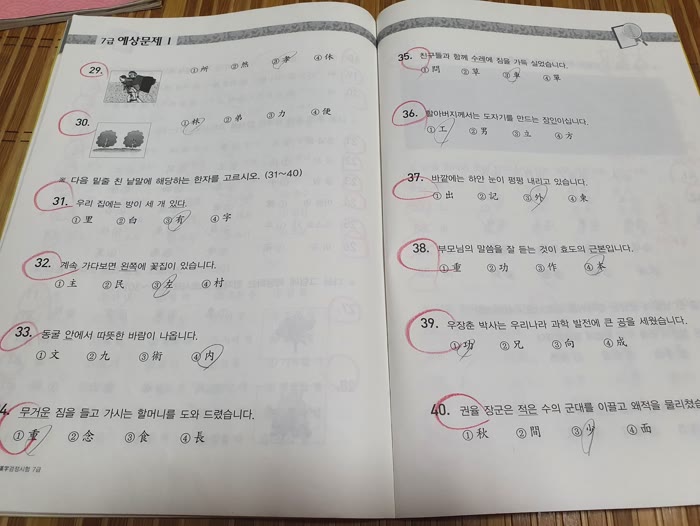 7급 예상문제 1
29. ①所 ②然 ③孝 ④休
30. ①林 ②弟 ③力 ④便
※ 다음 밑줄 친 낱말에 해당하는 한자를 고르시오. (31~40)
31. 우리 집에는 방이 세 개 있다.
①里 ②白 ③有 ④字
32. 계속 가다보면 왼쪽에 꽃집이 있습니다.
①主 ②民 ③左 ④村
33. 동굴 안에서 따뜻한 바람이 나옵니다.
①文 ②九 ③術 ④内
4. 무거운 짐을 들고 가시는 할머니를 도와 드렸습니다.
①重 ②念 ③食 ④長
漢字검정시험 7급
35. 친구들과 함께 수레에 짐을 가득 실었습니다.
①問 ②草 ③車 ④單
36. 할아버지께서는 도자기를 만드는 장인이십니다.
①工 ②男 ③立 ④方
37. 바깥에는 하얀 눈이 펑펑 내리고 있습니다.
①出 ②記 ③外 ④東
38. 부모님의 말씀을 잘 듣는 것이 효도의 근본입니다.
①重 ②功 ③作 ④本
39. 우장춘 박사는 우리나라 과학 발전에 큰 공을 세웠습니다.
①功 ②兄 ③向 ④成
40. 권율 장군은 적은 수의 군대를 이끌고 왜적을 물리쳤습
①秋 ②間 ③少 ④面